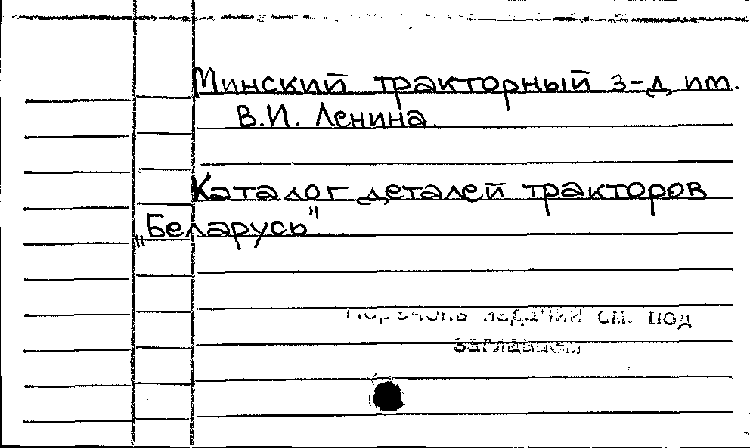 Минский тракторный з-д им.
В.И. Ленина
Каталог деталей тракторов
„Беларусь"
Перечень изданий см. под
заглавием